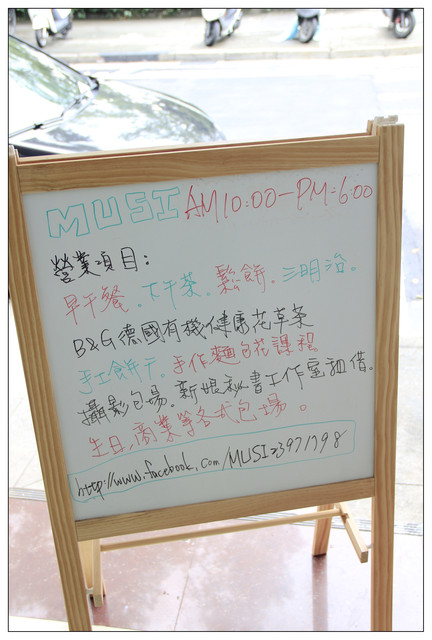 MUSI AM10:00-PM:6:00
營業項目:
早午餐。下午茶。鬆餅。三明治。
B&G德國有機健康花草茶
手工餅干。手作麵包花課程
攝影包場。新娘秘書工作室租借。
生日,商業等各式包場。
http://www.facebook.com/MUSI23971798